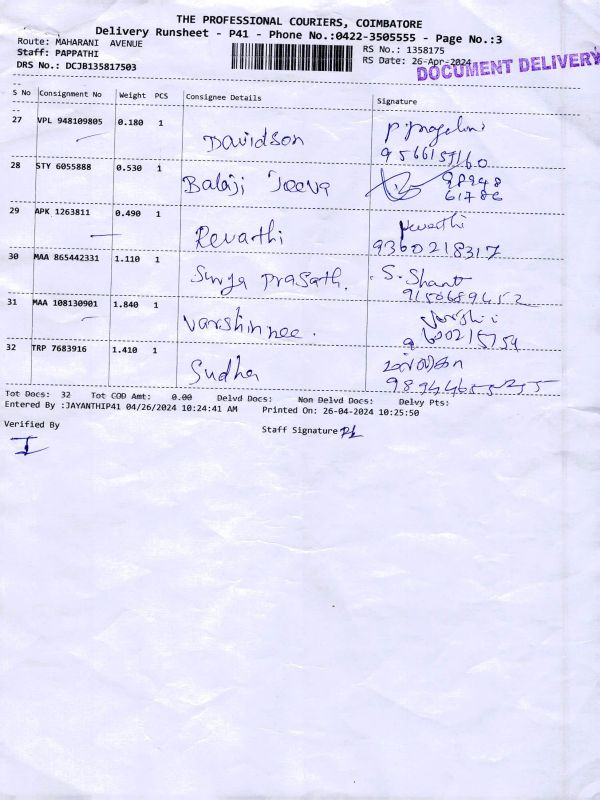 THE PROFESSIONAL COURIERS, COIMBATORE
Delivery Runsheet - P41 - Phone No.:0422-3505555 - Page No.:3
Route: MAHARANI AVENUE RS No.: 1358175
Staff: PAPPATHI RS Date: 26-Apr-2024
DRS No.: DCJB135817503 DOCUMENT DELIVERY
S No Consignment No Weight PCS Consignee Details Signature
27 VPL 948109805 0.180 1
Davidson
28 STY 6055888 0.530 1 98948
Balaji Jeeva 61786
29 APK 1263811 0.490 1 Revathi
Revarthi 9360218317
30 MAA 865442331 1.110 1 S. Shant
Surya Prasath. 9150689652
31 MAA 108130901 1.840 1
Varshinnee. 9600215754
32 TRP 7683916 1.410 1
Sudha
Tot Docs: 32 Tot COD Amt: 0.00 Delvd Docs: Non Delvd Docs: Delvy Pts:
Entered By :JAYANTHIP41 04/26/2024 10:24:41 AM Printed On: 26-04-2024 10:25:50
Verified By Staff Signature